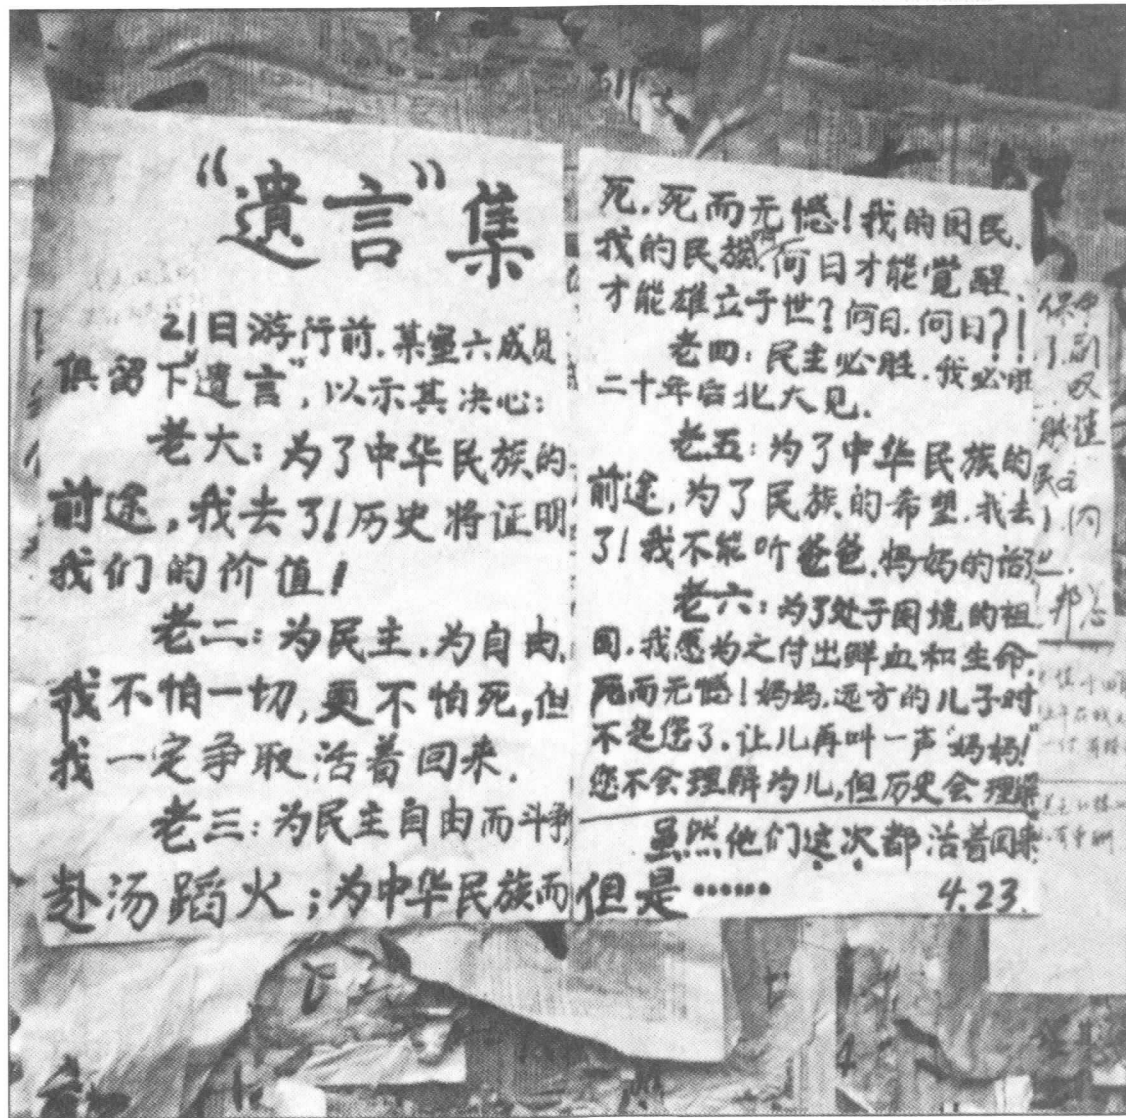 “遺言”集
21日游行前.某室六成员
俱留下“遗言”,以示其决心:
老大:为了中华民族的
前途,我去了!历史将证明
我们的价值!
老二:为民主.为自由.
我不怕一切,更不怕死,但
我一定争取活着回来.
老三:为民主自由而斗争
赴汤蹈火;为中华民族而
死.死而无憾!我的国民.
我的民族,何日才能觉醒.
才能雄立于世?何日.何日?!
老四:民主必胜.我必胜
二十年后北大见.
老五:为了中华民族的
前途,为了民族的希望.我去
了!我不能听爸爸.妈妈的话了
老六:为了处于困境的祖
国.我愿为之付出鲜血和生命.
死而无憾!妈妈.远方的儿子对
不起您了.让儿再叫一声“妈妈!”
您不会理解为儿,但历史会理解
虽然他们这次都活着回来
但是……
4.23.